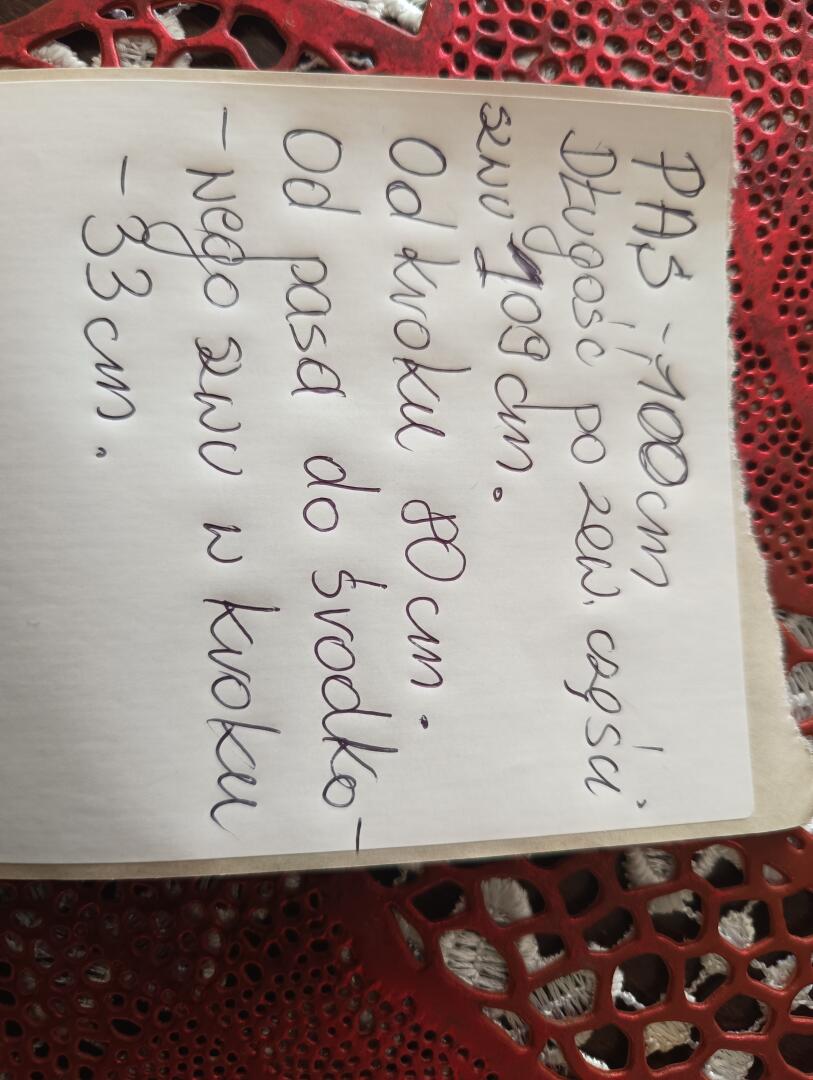 PAS - 100 cm
Długość po zew. częsci
szwu 109 cm.
Od kroku 80 cm.
Od pasa do środko-
- wego szwu w kroku
- 33 cm.